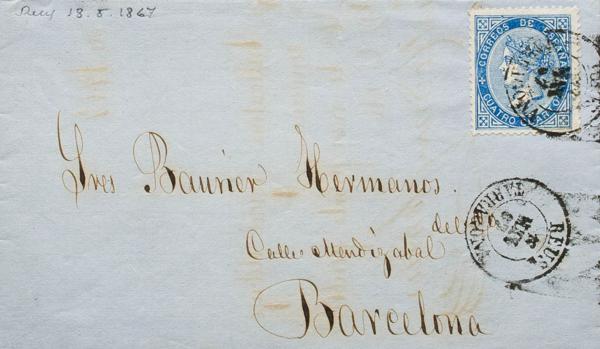 Reus 13.5.1867
CORREOS DE ESPAÑA
CUATRO CUARTOS
Sres Baurier Hermanos.
del
Calle Mendizabal
Barcelona
REUS
TARRAGONA